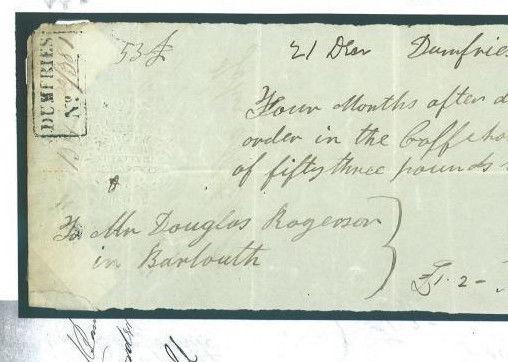 DUMFRIES
No
53£ 21 Decr Dumfries
Four Months after d
order in the Coffeho
of fifty three pounds
To Mr Douglas Rogerson
in Barlouth
£1. 2 -